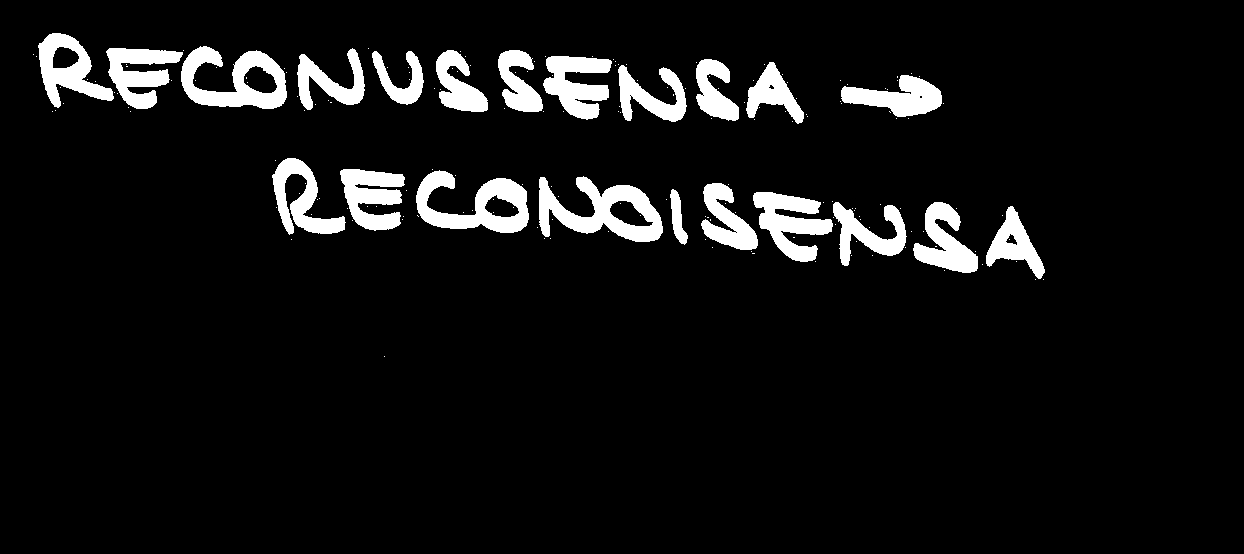 RECONUSSENSA →
RECONOISENSA